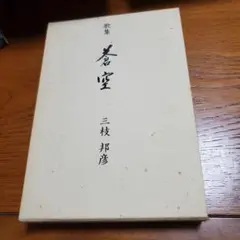 歌集
蒼空
三枝邦彦